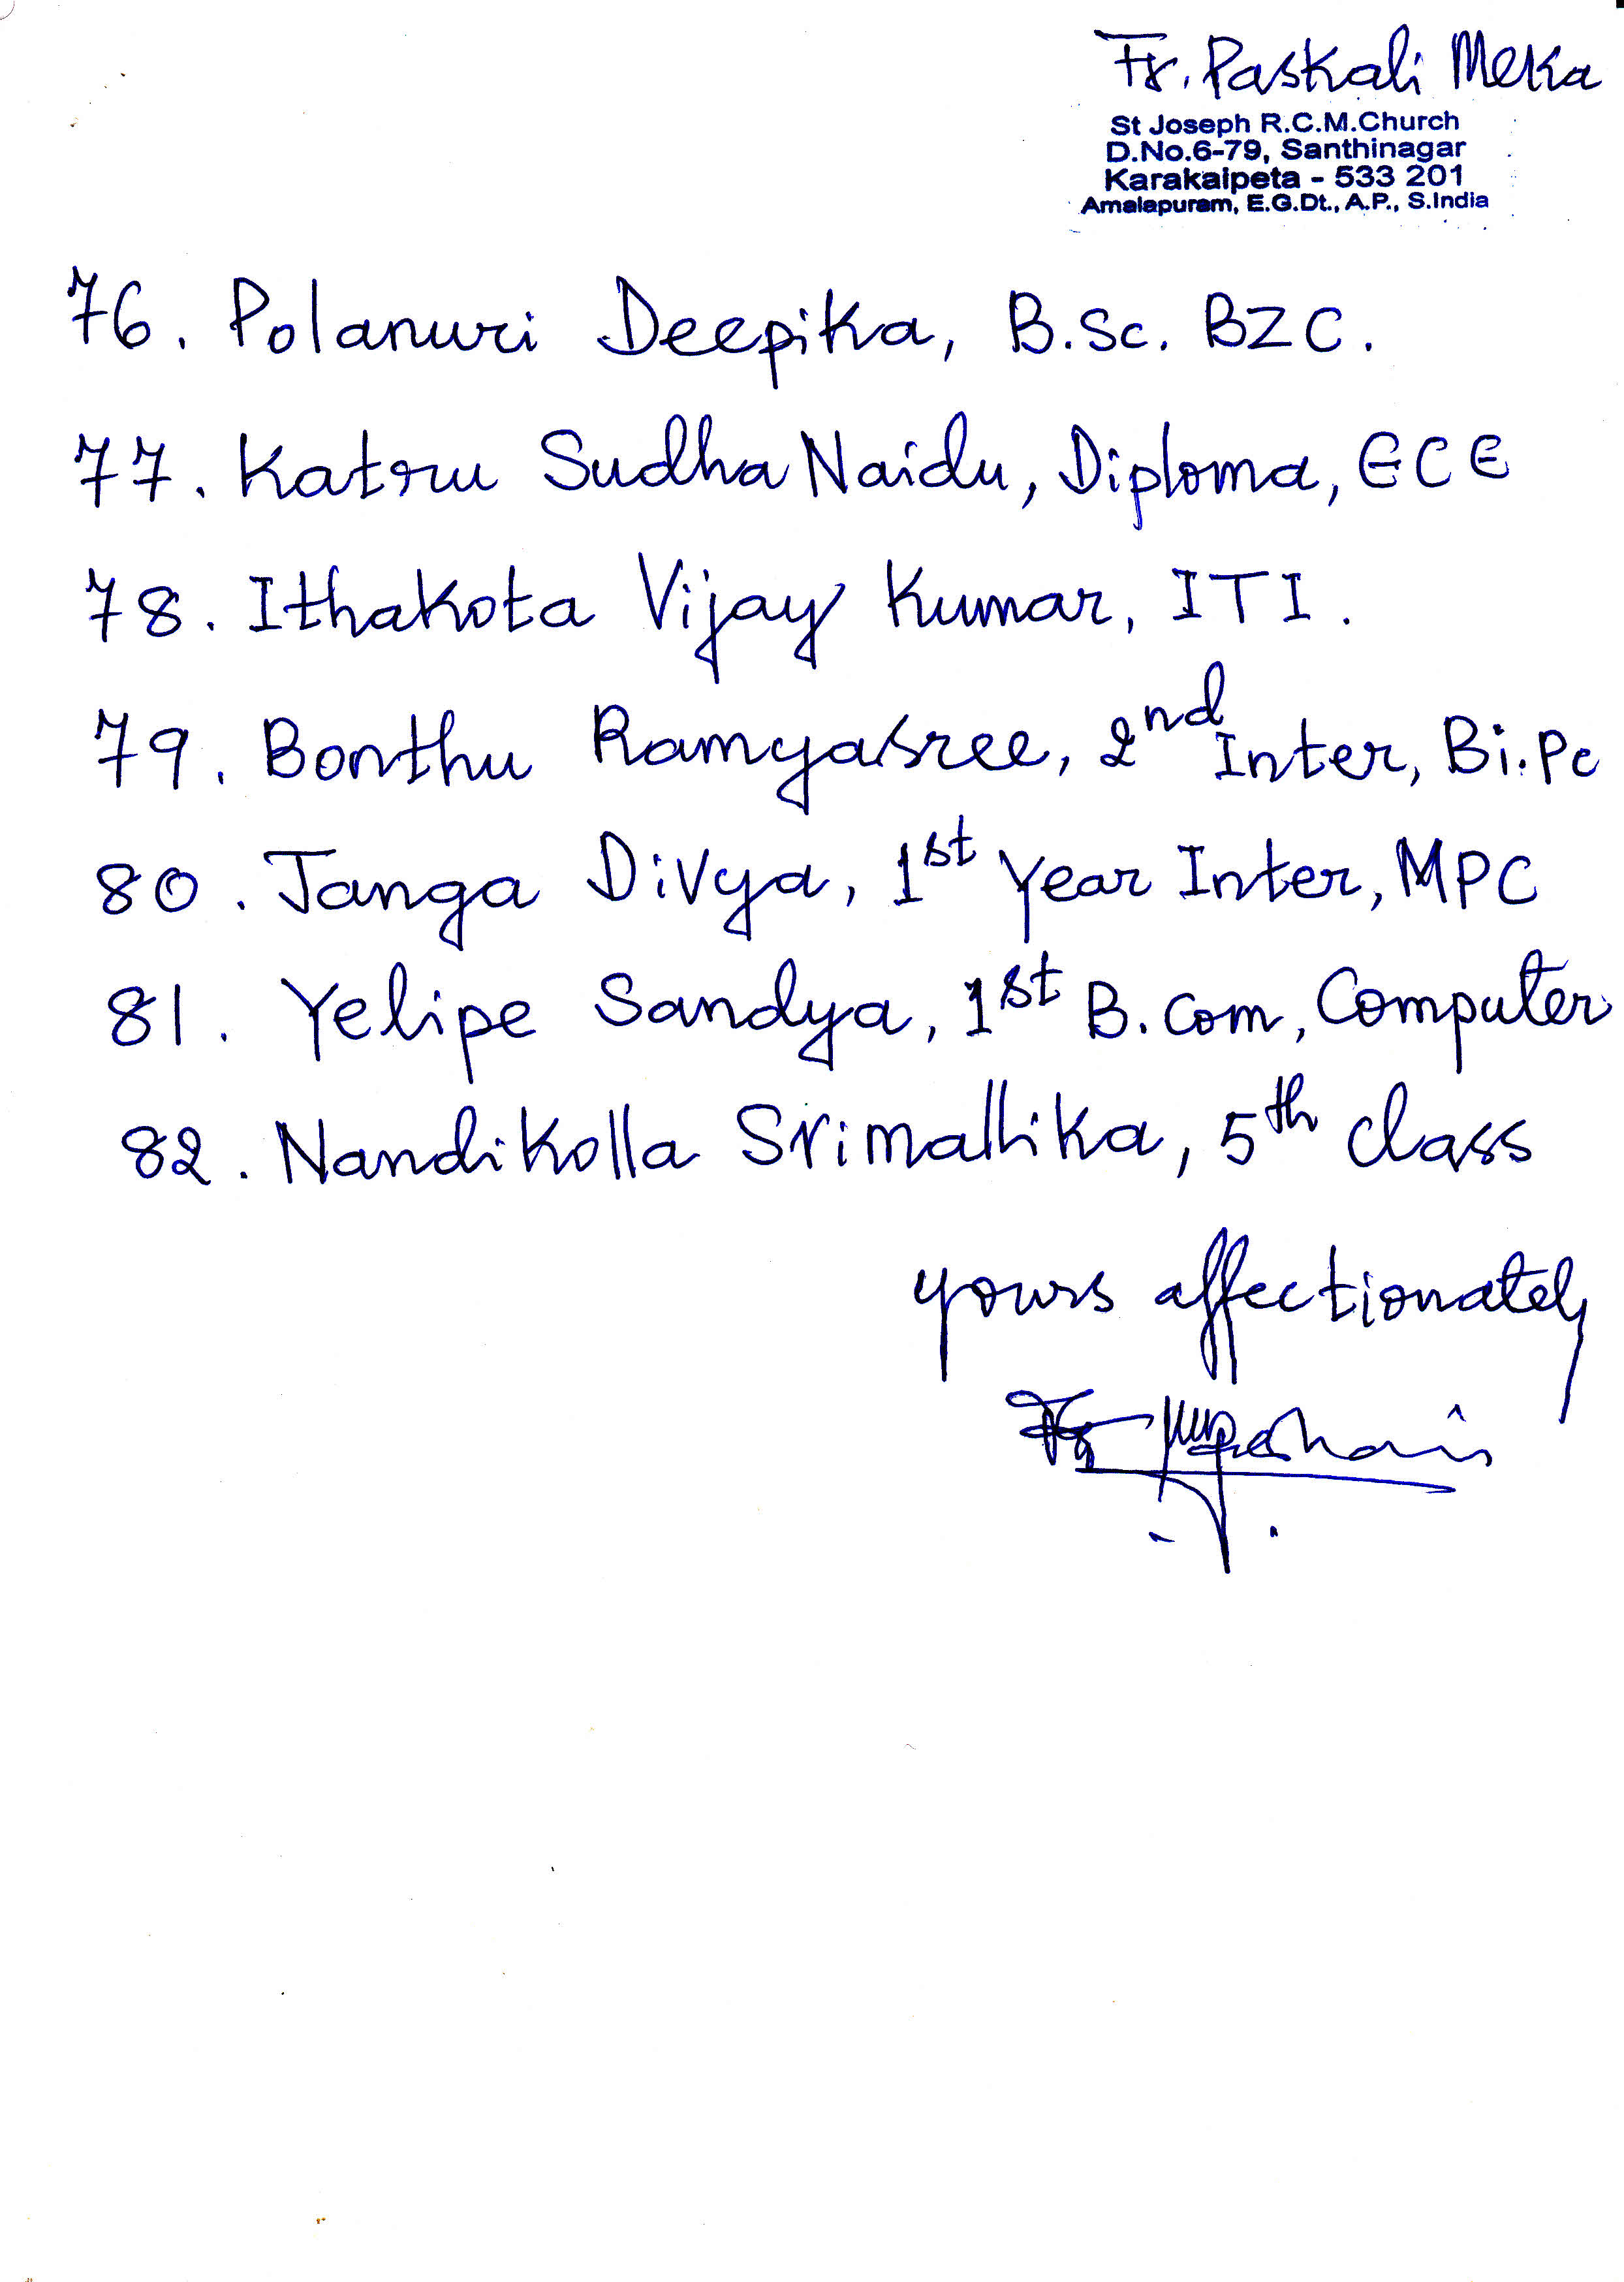 Fr. Paskali Meka
St Joseph R.C.M.Church
D.No.6-79, Santhinagar
Karakaipeta - 533 201
Amalapuram, E.G.Dt., A.P., S.India
76. Polanuri Deepika, B.Sc. BZC.
77. Katru Sudha Naidu, Diploma, ECE
78. Ithakota Vijay Kumar, ITI.
79. Bonthu Ramyasree, 2nd Inter, Bi.Pc
80. Janga Divya, 1st Year Inter, MPC
81. Yelipe Sandya, 1st B.Com, Computer
82. Nandikolla Srimallika, 5th class
yours affectionately